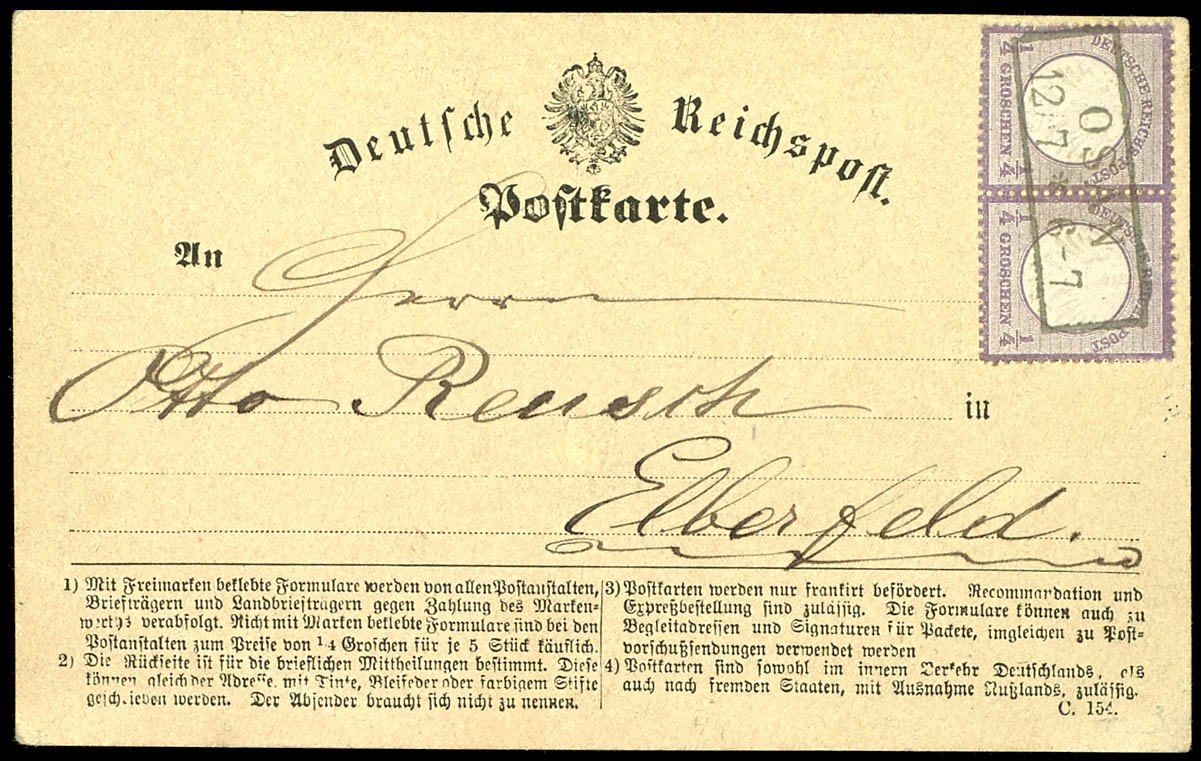 Deutsche Reichspost.
Postkarte.
An
Herrn
Otto Reusch
in
Elberfeld.
1) Mit Freimarken beklebte Formulare werden von allen Postanstalten,
Briefträgern und Landbriefträgern gegen Zahlung des Marken-
werths verabfolgt. Nicht mit Marken beklebte Formulare sind bei den
Postanstalten zum Preise von 1/4 Groschen für je 5 Stück käuflich.
2) Die Rückseite ist für die brieflichen Mittheilungen bestimmt. Diese
können gleich der Adresse, mit Tinte, Bleifeder oder farbigem Stifte
geschrieben werden. Der Absender braucht sich nicht zu nennen.
3) Postkarten werden nur frankirt befördert. Recommandation und
Expreßbestellung sind zulässig. Die Formulare können auch zu
Begleitadressen und Signaturen für Packete, imgleichen zu Post-
vorschußsendungen verwendet werden
4) Postkarten sind sowohl im innern Verkehr Deutschlands, als
auch nach fremden Staaten, mit Ausnahme Rußlands, zulässig.
C. 154.
DEUTSCHE REICHS-POST
1/4 GROSCHEN 1/4
POST
1/4 GROSCHEN 1/4
12 7 * 6-7